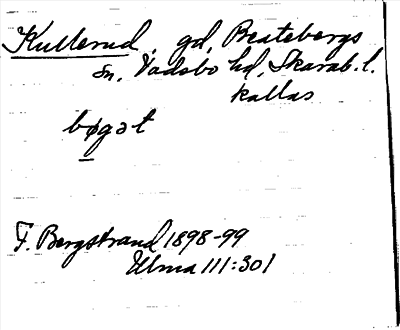 Kullerud, gd, Beatebergs
sn, Vadsbo hd, Skarab. l.
kallas
bøgət
F. Bergstrand 1898-99
Ulma 111:301